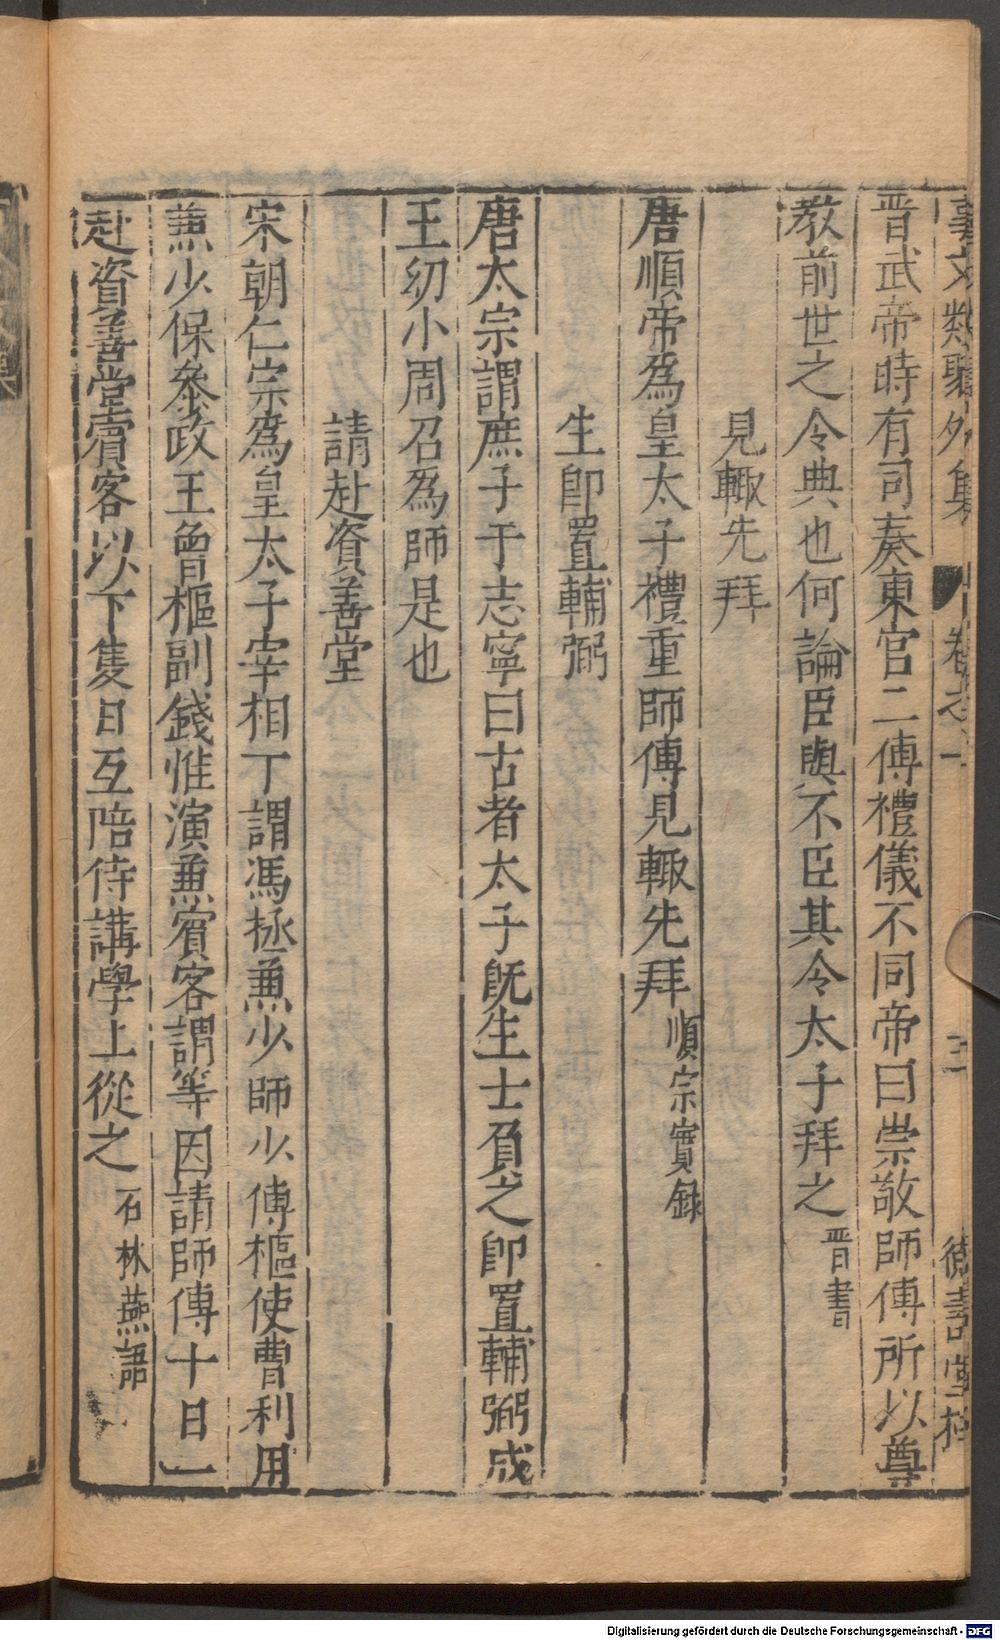 事文類聚外集 卷之一 三 德壽堂梓
晋武帝時有司奏東宫二傅禮儀不同帝曰崇敬師傅所以尊
教前世之令典也何論臣與不臣其令太子拜之 晋書
見輙先拜
唐順帝為皇太子禮重師傅見輙先拜 順宗實録
生卽置輔弼
唐太宗謂庶子于志寧曰古者太子旣生士負之卽置輔弼成
王幼小周召為師是也
請赴資善堂
宋朝仁宗為皇太子宰相丁謂馮拯𠔥少師少傅樞使曹利用
𠔥少保叅政王曾樞副錢惟演𠔥賓客謂等因請師傅十日一
赴資善堂賓客以下隻日互陪侍講學上從之 石林燕語
Digitalisierung gefördert durch die Deutsche Forschungsgemeinschaft - DFG